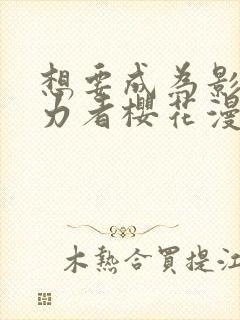 想要成為影
力者櫻花漫
木熱合買提江